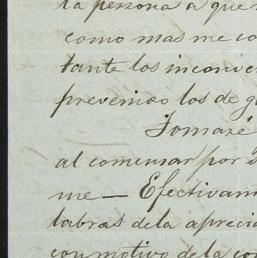 la persona a que
como mas me co
tante los inconve
prevenido los de g
Tomaré
al comensar por
me — Efectivam
labras dela aprecia
con motivo de la con